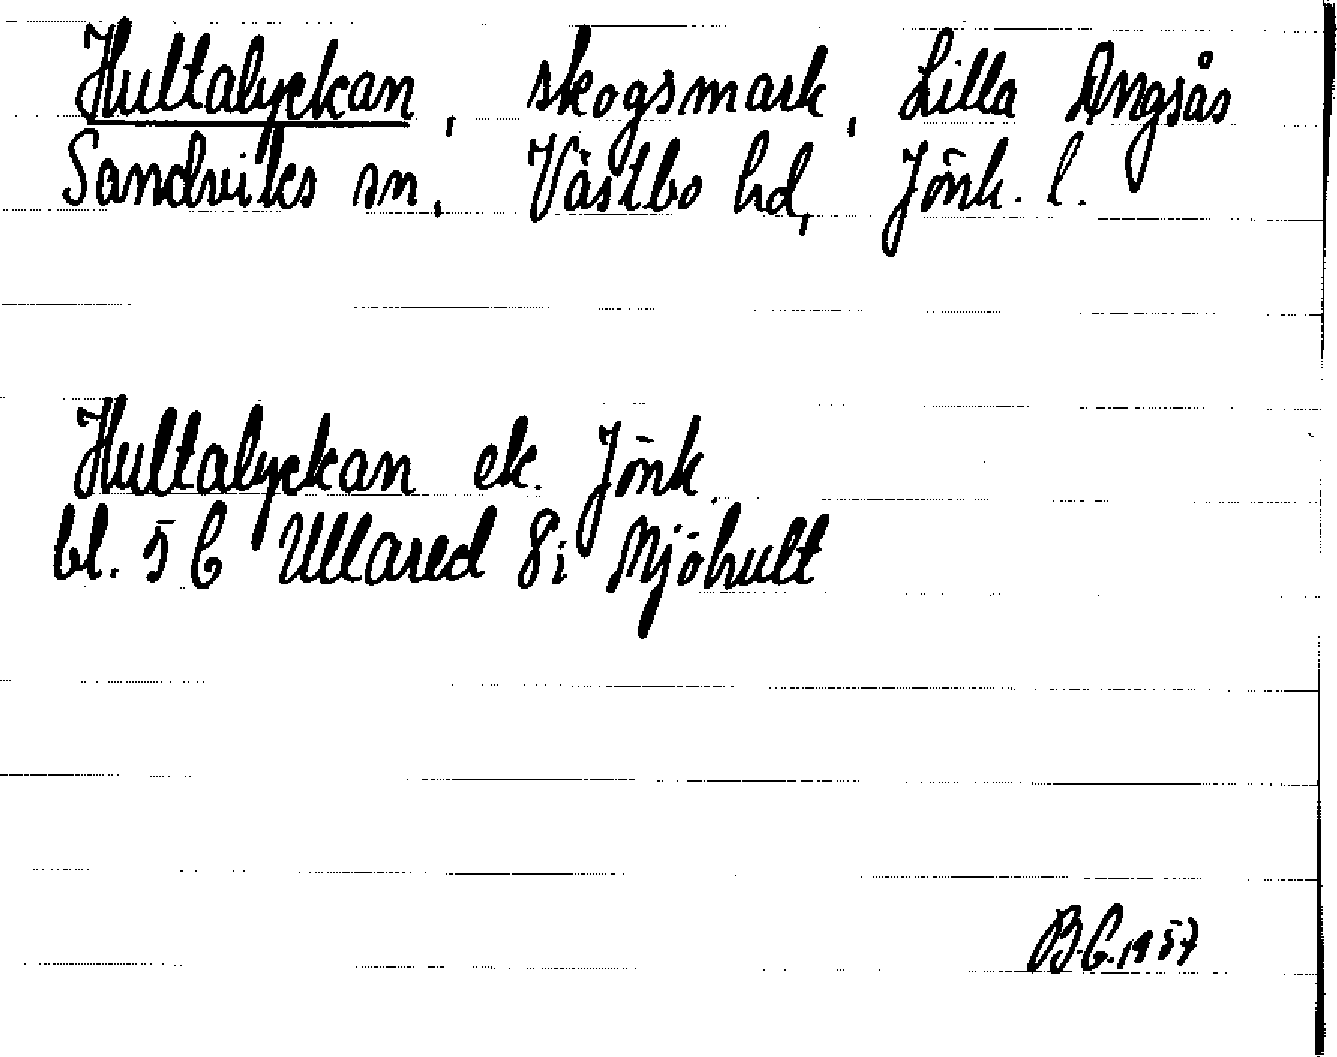 Hultalyckan, skogsmark, Lilla Ängsås
Sandviks sn. Västbo hd, Jönk. l.
Hultalyckan ek. Jönk.
bl. 5 C Ullared 8i Mjöhult
B.C. 1957